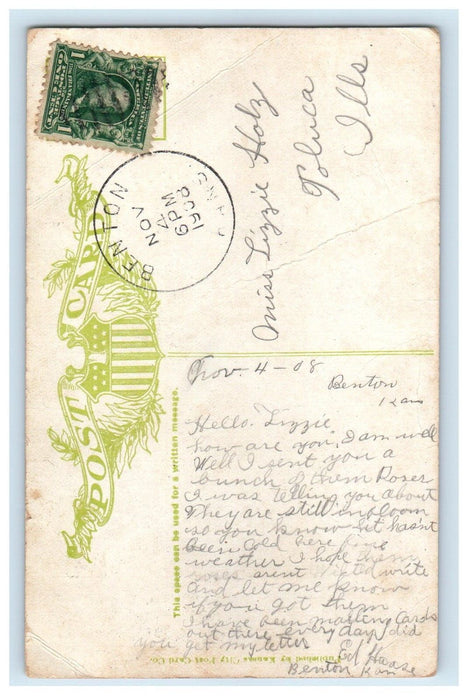 ONE CENT 1
1
BENTON KANS.
NOV
4
6 PM
1908
POST CARD
Miss Lizzie Holz
Toluca
Ills
This space can be used for a written message.
Nov. 4-08
Benton
Kans
Hello. Lizzie
how are you, I am well
Well I sent you a
bunch of them Roses
I was telling you about
They are still in bloom
so you know hit hasnt
been cold here fine
weather I hope them
roses arent write
and let me know
if you got them
I have been mailing Cards
out there every day, did
you get my letter
Ed Haase
Benton Kan
Published by Kansas City Post Card Co.